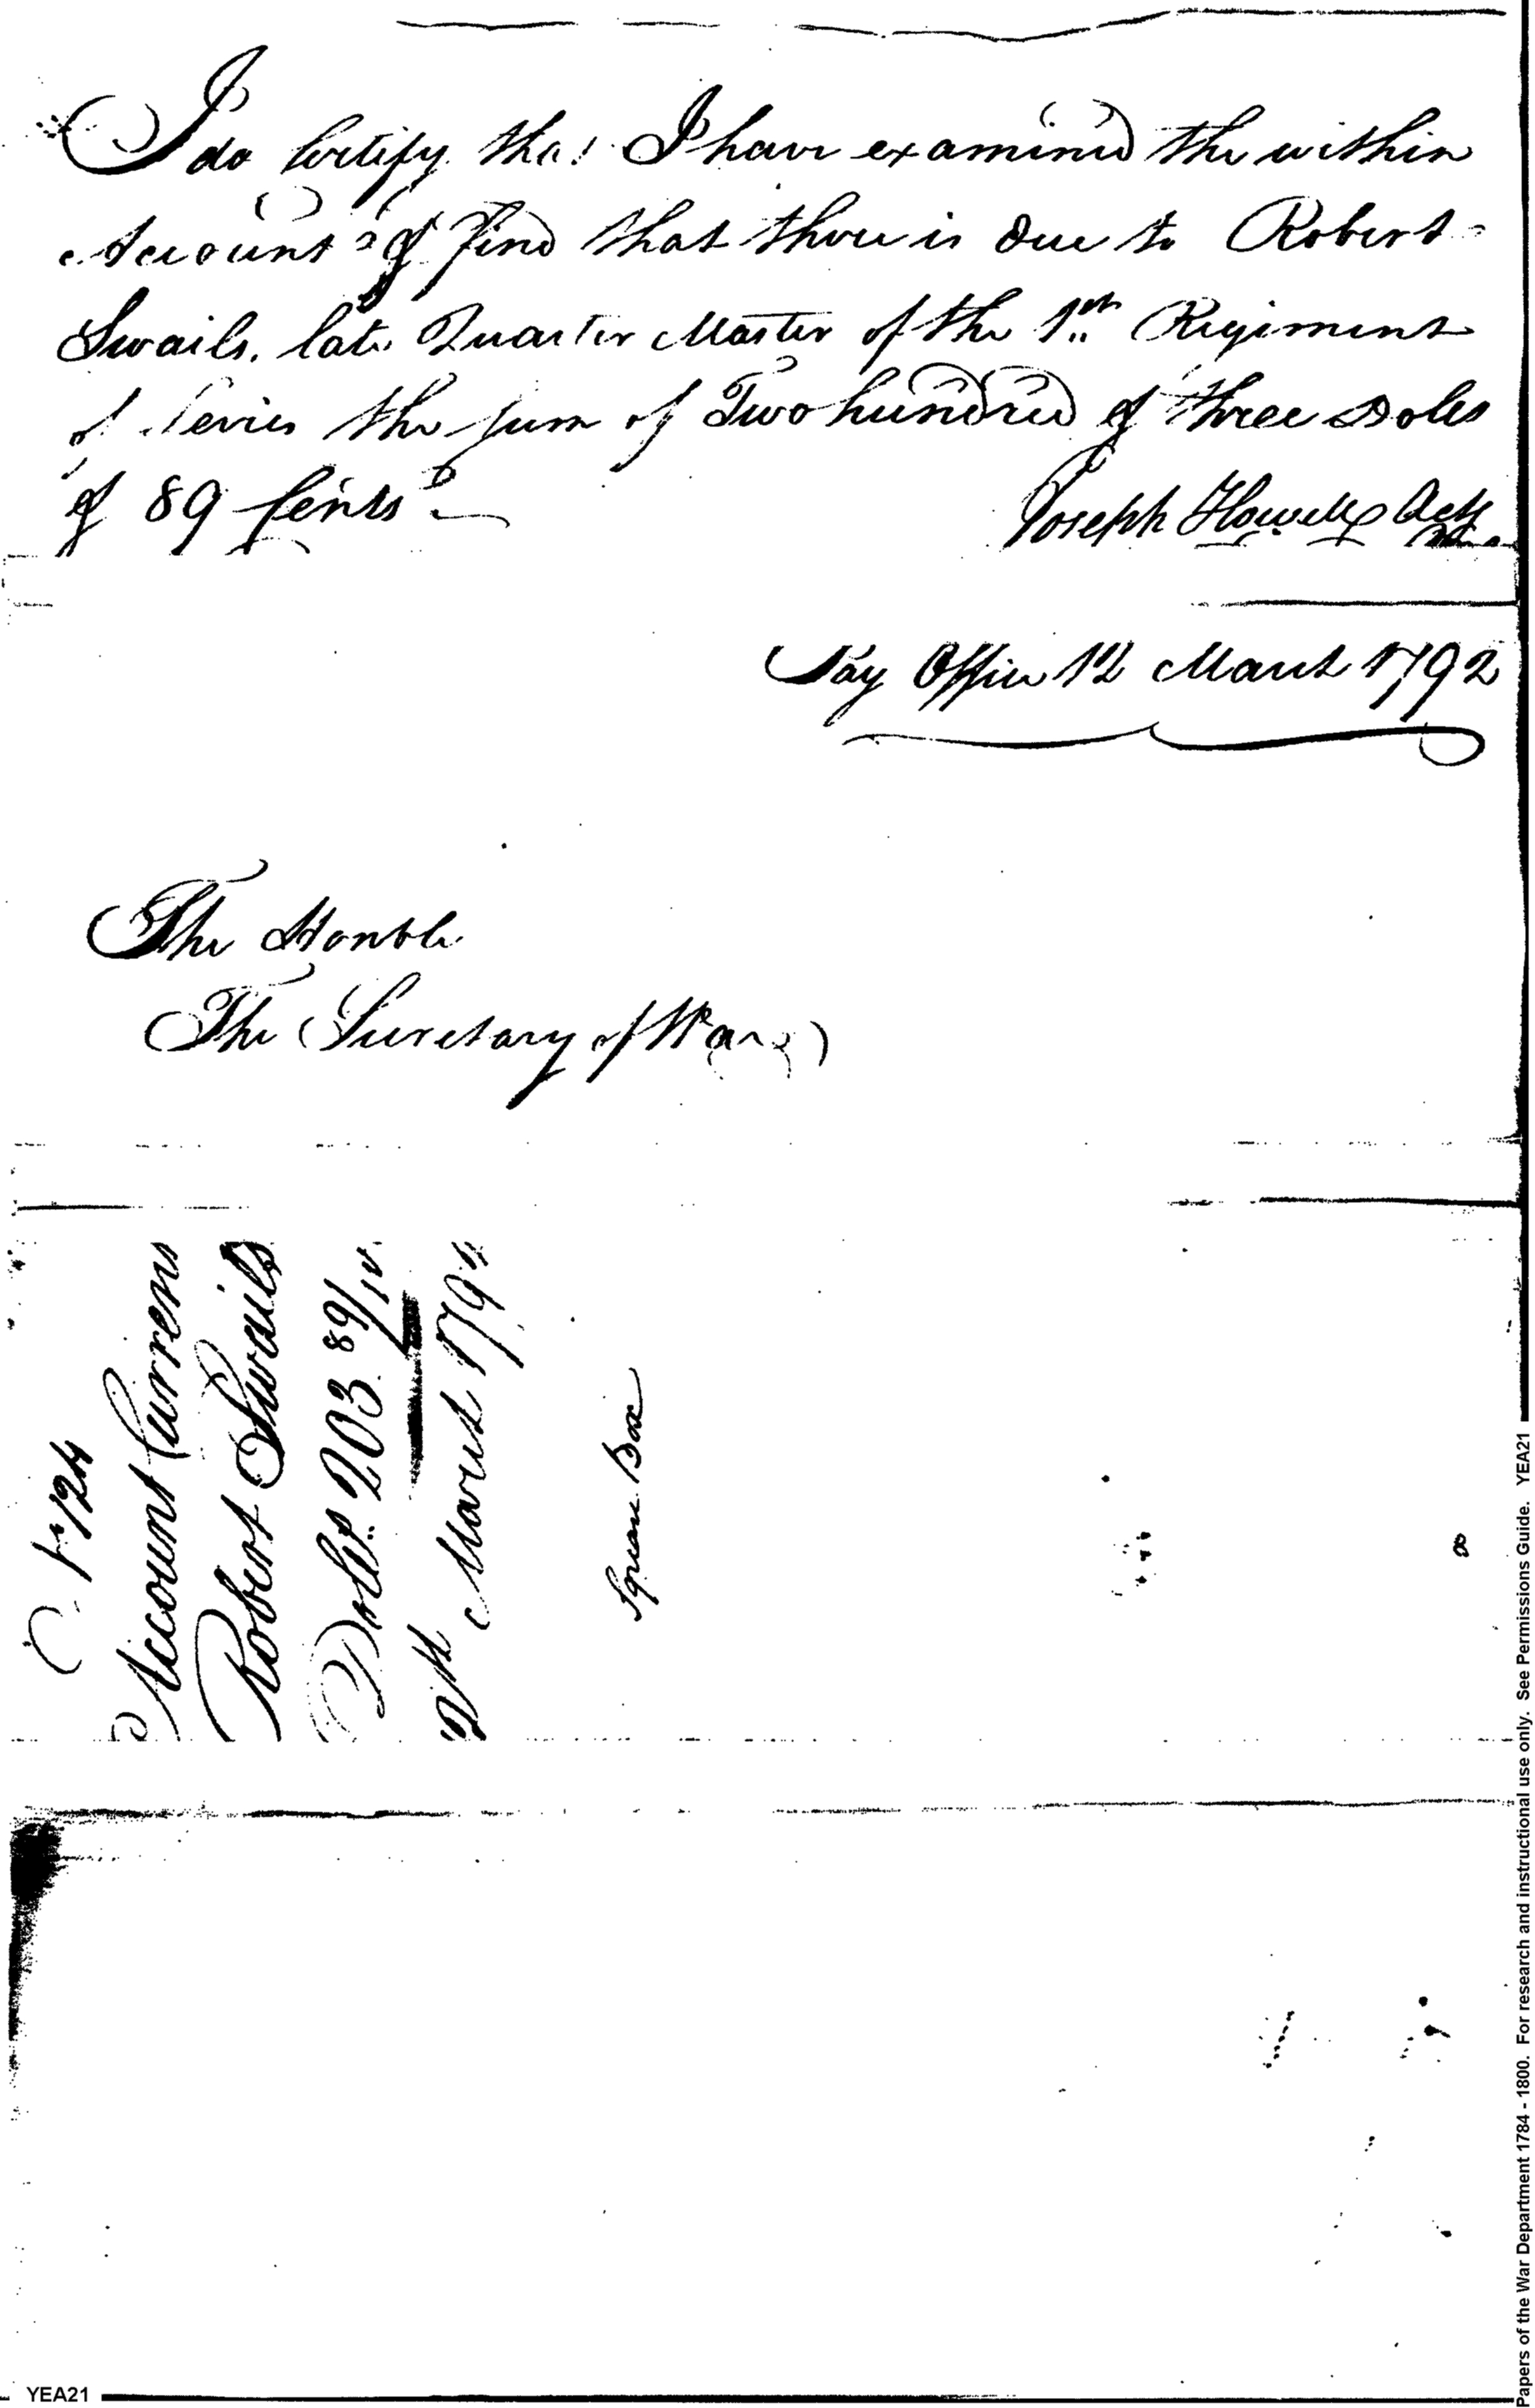 I do Certify that I have examined the within
Account & find that there is due to Robert
Swails, late Quarter Master of the 1st Regiment
of Levies the sum of Two hundred & three Dolls
& 89 Cents
Joseph Howell Actt
Pay Office 12 March 1792
The Honble
The Secretary of War
Account Current
Robert Swails
Dolls. 203 89/10
March 179
Square Box
8
YEA21
Papers of the War Department 1784 - 1800. For research and instructional use only. See Permissions Guide. YEA21